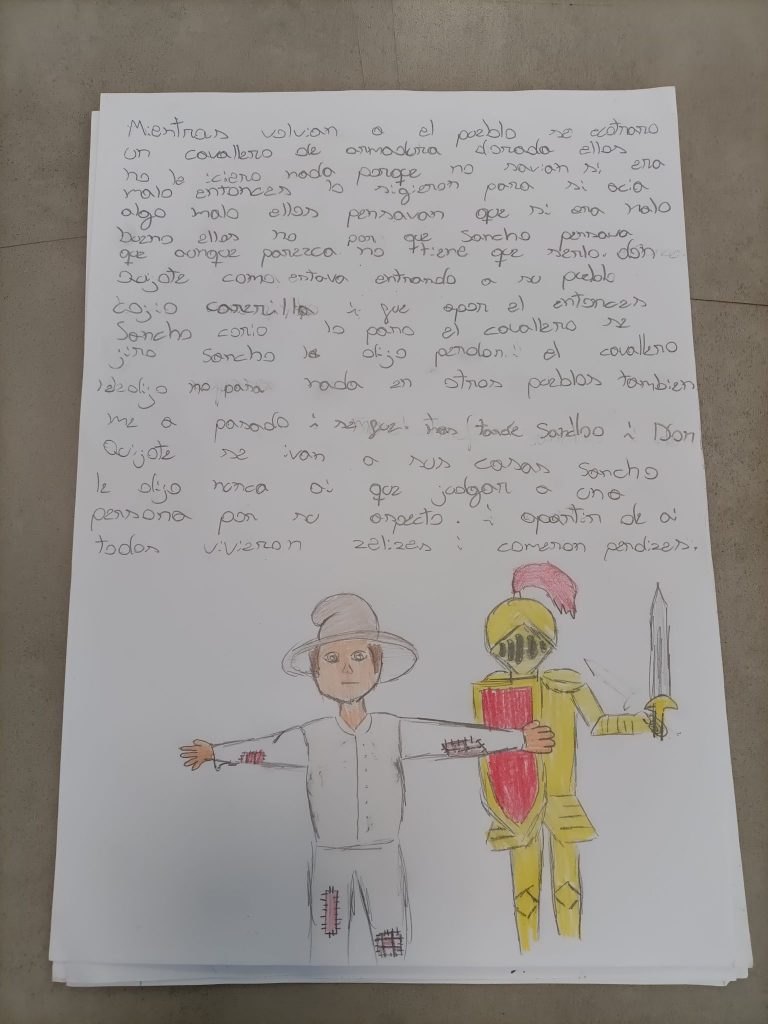 Mientras volvian a el pueblo se
un cavallero de armadura dorada ellos
no le iciero nada porque no savian si era
malo entonces lo sigieron para si acia
algo malo ellos pensavan que si era malo
bueno ellos no por que Sancho pensava
que aunque parezca no tiene que serlo. don
Quijote como estava entrando a su pueblo
cojio i que apor el entonces
Sancho corio lo paro el cavallero se
jiro Sancho le dijo perdon i el cavallero
dijo no pasa nada en otros pueblos tambien
me a pasado i tarde Sancho i Don
Quijote se ivan a sus casas Sancho
le dijo nunca ai que judgar a una
persona por su aspecto. i apartir de ai
todos vivieron zelizes i comeron perdizes.